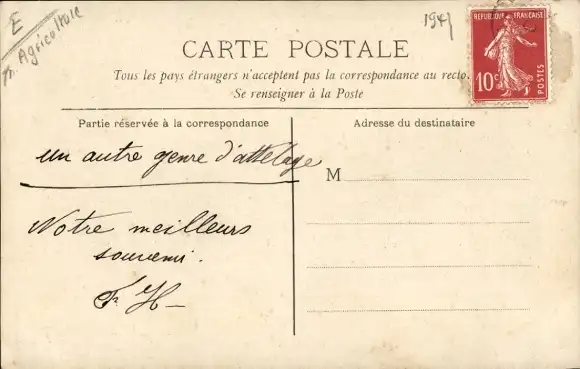 E
Agricoltore
1941
RÉPUBLIQUE FRANÇAISE
10c
POSTES
CARTE POSTALE
Tous les pays étrangers n'acceptent pas la correspondance au recto.
Se renseigner à la Poste
Partie réservée à la correspondance
Adresse du destinataire
un autre genre d'attelage
M
Notre meilleurs
souvenir.
F. H—